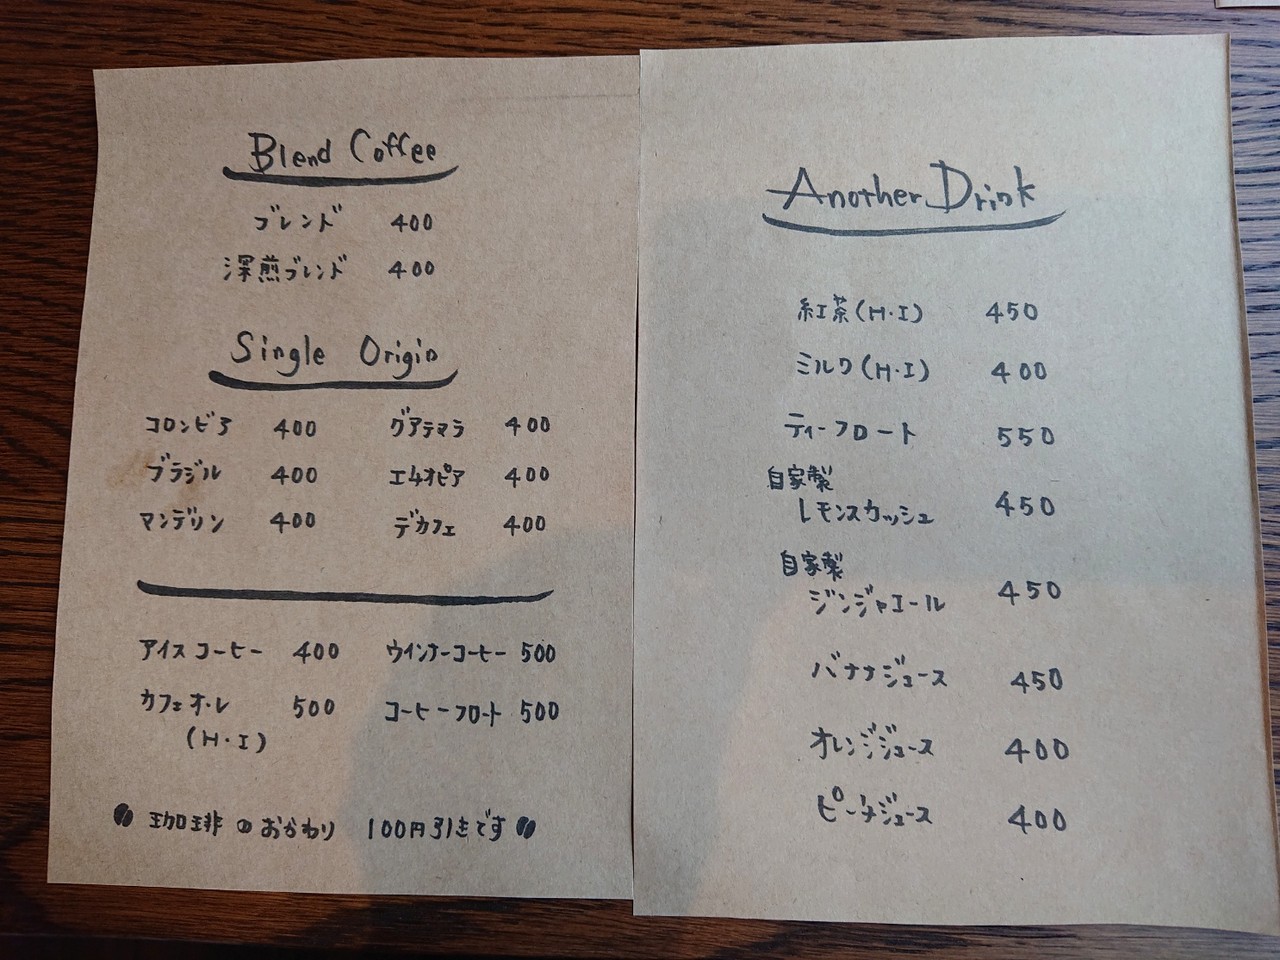 Blend Coffee
ブレンド 400
深煎ブレンド 400
Single Origin
コロンビア 400 グアテマラ 400
ブラジル 400 エチオピア 400
マンデリン 400 デカフェ 400
アイスコーヒー 400 ウインナーコーヒー 500
カフェオ・レ 500 コーヒーフロート 500
(H・I)
珈琲のおかわり 100円引きです
Another Drink
紅茶(H・I) 450
ミルク(H・I) 400
ティーフロート 550
自家製
レモンスカッシュ 450
自家製
ジンジャエール 450
バナナジュース 450
オレンジジュース 400
ピーチジュース 400